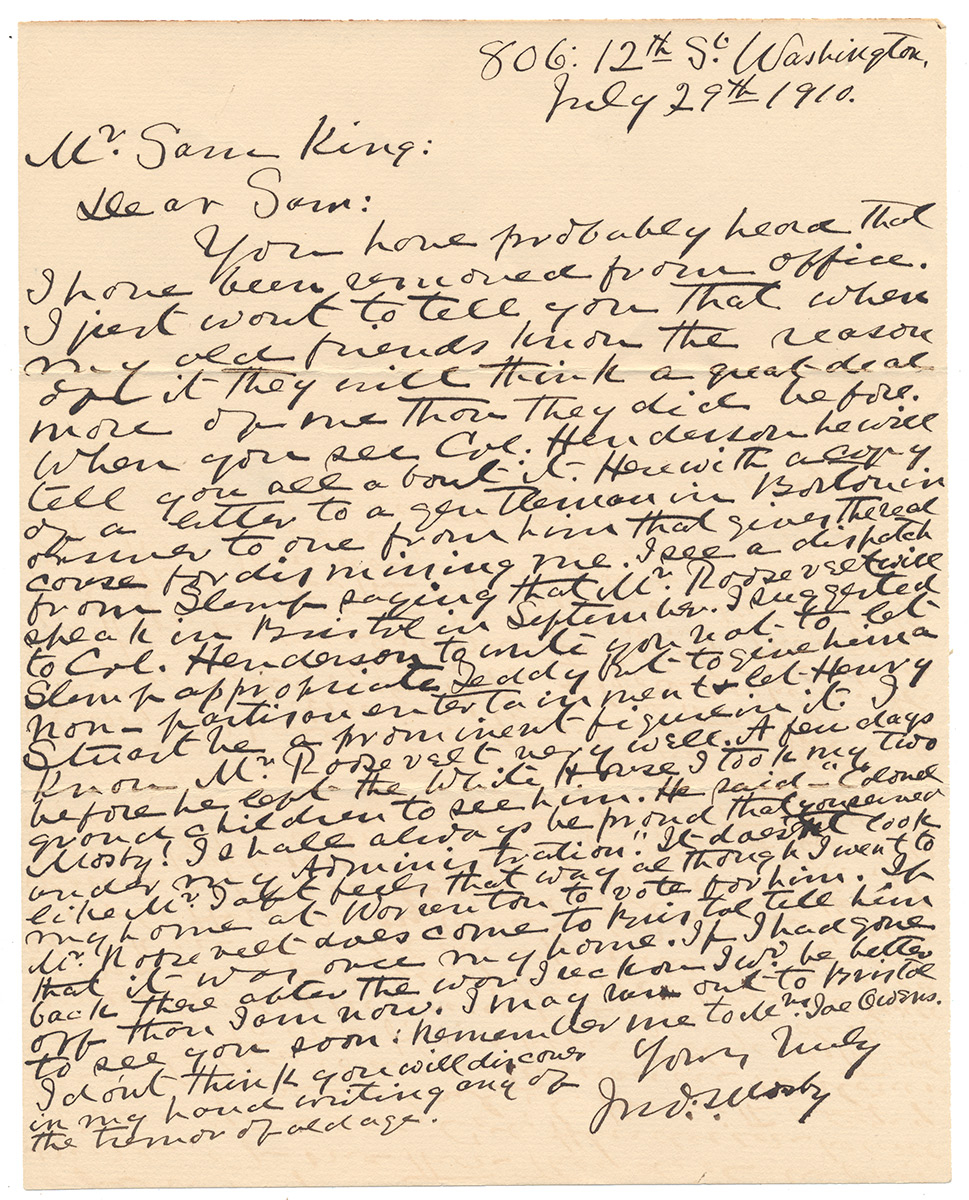 806: 12th St. Washington,
July 29th 1910.
Mr. Sam King:
Dear Sam:
You have probably heard that
I have been removed from office.
I just want to tell you that when
my old friends know the reason
of it they will think a great deal
more of me than they did before.
When you see Col. Henderson he will
tell you all about it. Herewith a copy
of a letter to a gentleman in Boston in
answer to one from him that gives the real
cause for dismissing me. I see a dispatch
from Slemp saying that Mr. Roosevelt will
speak in Bristol in September. I suggested
to Col. Henderson to write you not to let
Slemp appropriate Teddy but to give him a
non-partison entertainment & let Henry
Stuart be a prominent figure in it. I
know Mr. Roosevelt very well. A few days
before he left the White House I took my two
grand children to see him. He said - "Colonel
Mosby! I shall always be proud that you served
under my Administration." It doesn't look
like Mr. Taft feels that way although I went to
my home at Warrenton to vote for him. If
Mr. Roosevelt does come to Bristol tell him
that it was once my home. If I had gone
back there after the war I reckon I wd. be better
off than I am now. I may run out to Bristol
to see you soon: Remember me to Joe Owens.
I don't think you will discover
in my hand writing any of
the tremor of old age.
Yours Truly
Jno. S. Mosby